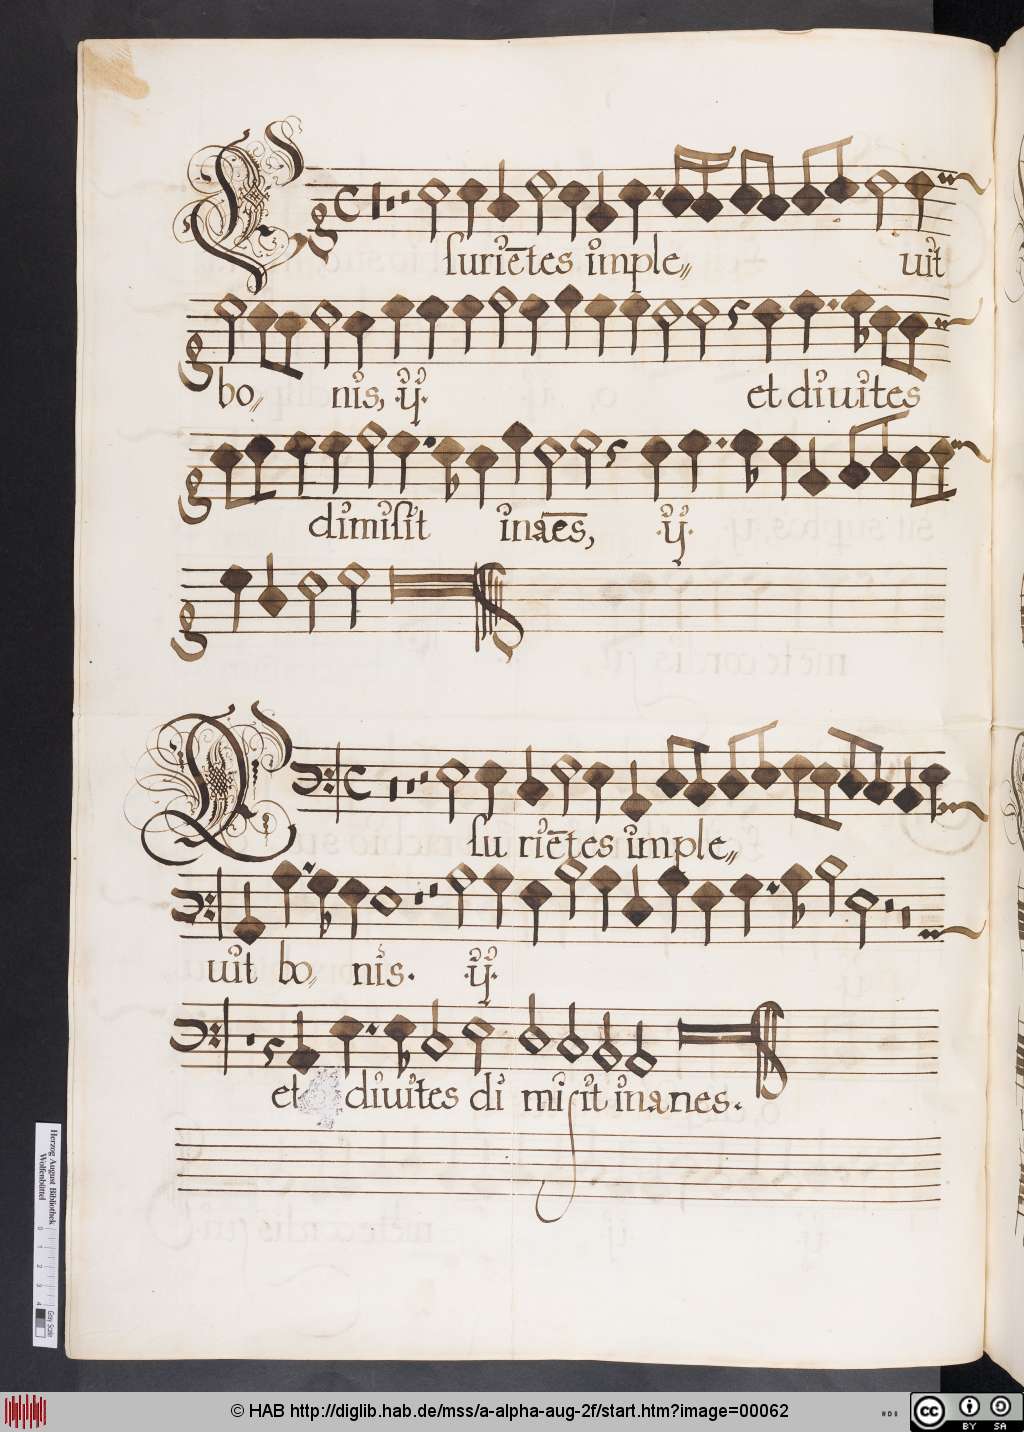 Esuriētes imple〃 uit
bo〃 nis, ·ÿ· et diuites
dimisit inaēs, ·ÿ·
Esu riētes imple〃
uit bo〃 nis. ·ÿ·
et diuites di misit inanes.
Herzog August Bibliothek
Wolfenbüttel
0 1 2 3 4
Grey Scale
© HAB http://diglib.hab.de/mss/a-alpha-aug-2f/start.htm?image=00062
cc BY SA